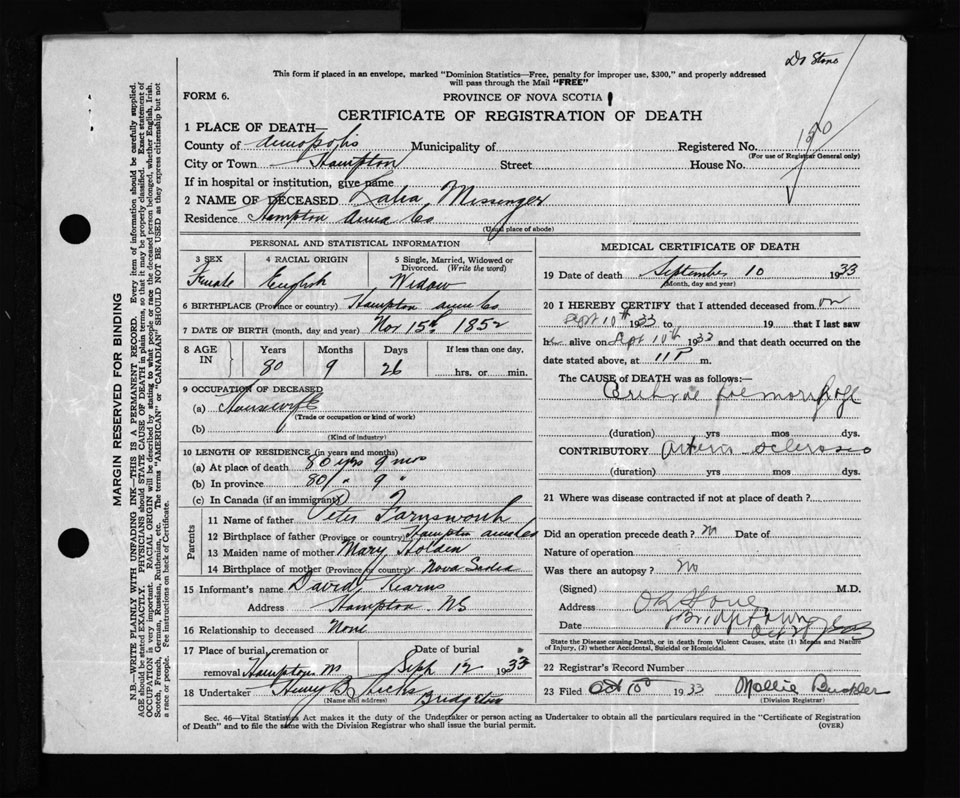 Dr Stone
This form if placed in an envelope, marked "Dominion Statistics—Free, penalty for improper use, $300," and properly addressed
will pass through the Mail "FREE"
FORM 6.
PROVINCE OF NOVA SCOTIA
CERTIFICATE OF REGISTRATION OF DEATH
1 PLACE OF DEATH—
County of Annapolis Municipality of Registered No.
(For use of Registrar General only)
City or Town Hampton Street House No.
If in hospital or institution, give name
2 NAME OF DECEASED Messinger
Residence Hampton Anna Co
(Usual place of abode)
PERSONAL AND STATISTICAL INFORMATION
3 SEX 4 RACIAL ORIGIN 5 Single, Married, Widowed or
Divorced. (Write the word)
Female English Widow
6 BIRTHPLACE (Province or country) Hampton Ann Co
7 DATE OF BIRTH (month, day and year) Nov 15th 1852
8 AGE IN Years Months Days If less than one day,
80 9 26 hrs. or min.
9 OCCUPATION OF DECEASED
(a) Housewife
(Trade or occupation or kind of work)
(b)
(Kind of industry)
10 LENGTH OF RESIDENCE (in years and months)
(a) At place of death 80 yrs 9 mos
(b) In province 80 " 9 "
(c) In Canada (if an immigrant)
Parents
11 Name of father Peter Farnsworth
12 Birthplace of father (Province or country) Hampton
13 Maiden name of mother Mary Holden
14 Birthplace of mother (Province or country) Nova Scotia
15 Informant's name David Kearns
Address Hampton NS
16 Relationship to deceased None
17 Place of burial, cremation or Date of burial
removal Hampton Sept 12 1933
18 Undertaker Henry B Hicks
(Name and address) Bridgetown
MEDICAL CERTIFICATE OF DEATH
19 Date of death September 10 1933
(Month, day and year)
20 I HEREBY CERTIFY that I attended deceased from on
Sept 10th 1933 to 19 that I last saw
h alive on Sept 10th 1933 and that death occurred on the
date stated above, at 11 P m.
The CAUSE OF DEATH was as follows:—
Cerebral Haemorrhage
(duration) yrs mos dys.
CONTRIBUTORY Arterio Sclerosis
(duration) yrs mos dys.
21 Where was disease contracted if not at place of death?
Did an operation precede death? Date of
Nature of operation
Was there an autopsy? No
(Signed) M.D.
Address Bridgetown
Date
State the Disease causing Death, or in death from Violent Causes, state (1) Means and Nature
of Injury, (2) whether Accidental, Suicidal or Homicidal.
22 Registrar's Record Number
23 Filed Oct 1933 Mollie Buckler
(Division Registrar)
Sec. 46—Vital Statistics Act makes it the duty of the Undertaker or person acting as Undertaker to obtain all the particulars required in the "Certificate of Registration
of Death" and to file the same with the Division Registrar who shall issue the burial permit. (OVER)
MARGIN RESERVED FOR BINDING
N.B.—WRITE PLAINLY WITH UNFADING INK—THIS IS A PERMANENT RECORD. Every item of information should be carefully supplied.
AGE should be stated EXACTLY. PHYSICIANS should STATE CAUSE OF DEATH in plain terms, so that it may be properly classified. Exact statement of
OCCUPATION is very important. RACIAL ORIGIN will be described by stating to what people or race the deceased person belonged, whether English, Irish,
Scotch, French, German, Russian, Ruthenian, etc. The terms "AMERICAN" or "CANADIAN" SHOULD NOT BE USED as they express citizenship but not
a race or people. See instructions on back of Certificate.